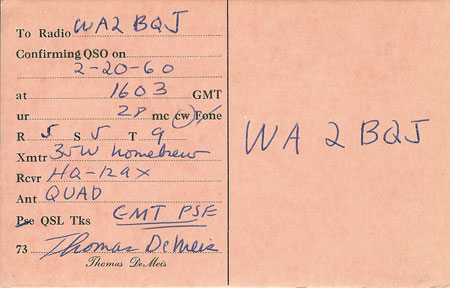 To Radio WA2 BQJ
Confirming QSO on
2-20-60
at 1603 GMT
ur 28 mc cw Fone
R 5 S 5 T 9
Xmtr 35W homebrew
Rcvr HQ-129X
Ant QUAD
Pse QSL Tks GMT PSE
73 Thomas DeMeis
Thomas DeMeis
WA 2 BQJ